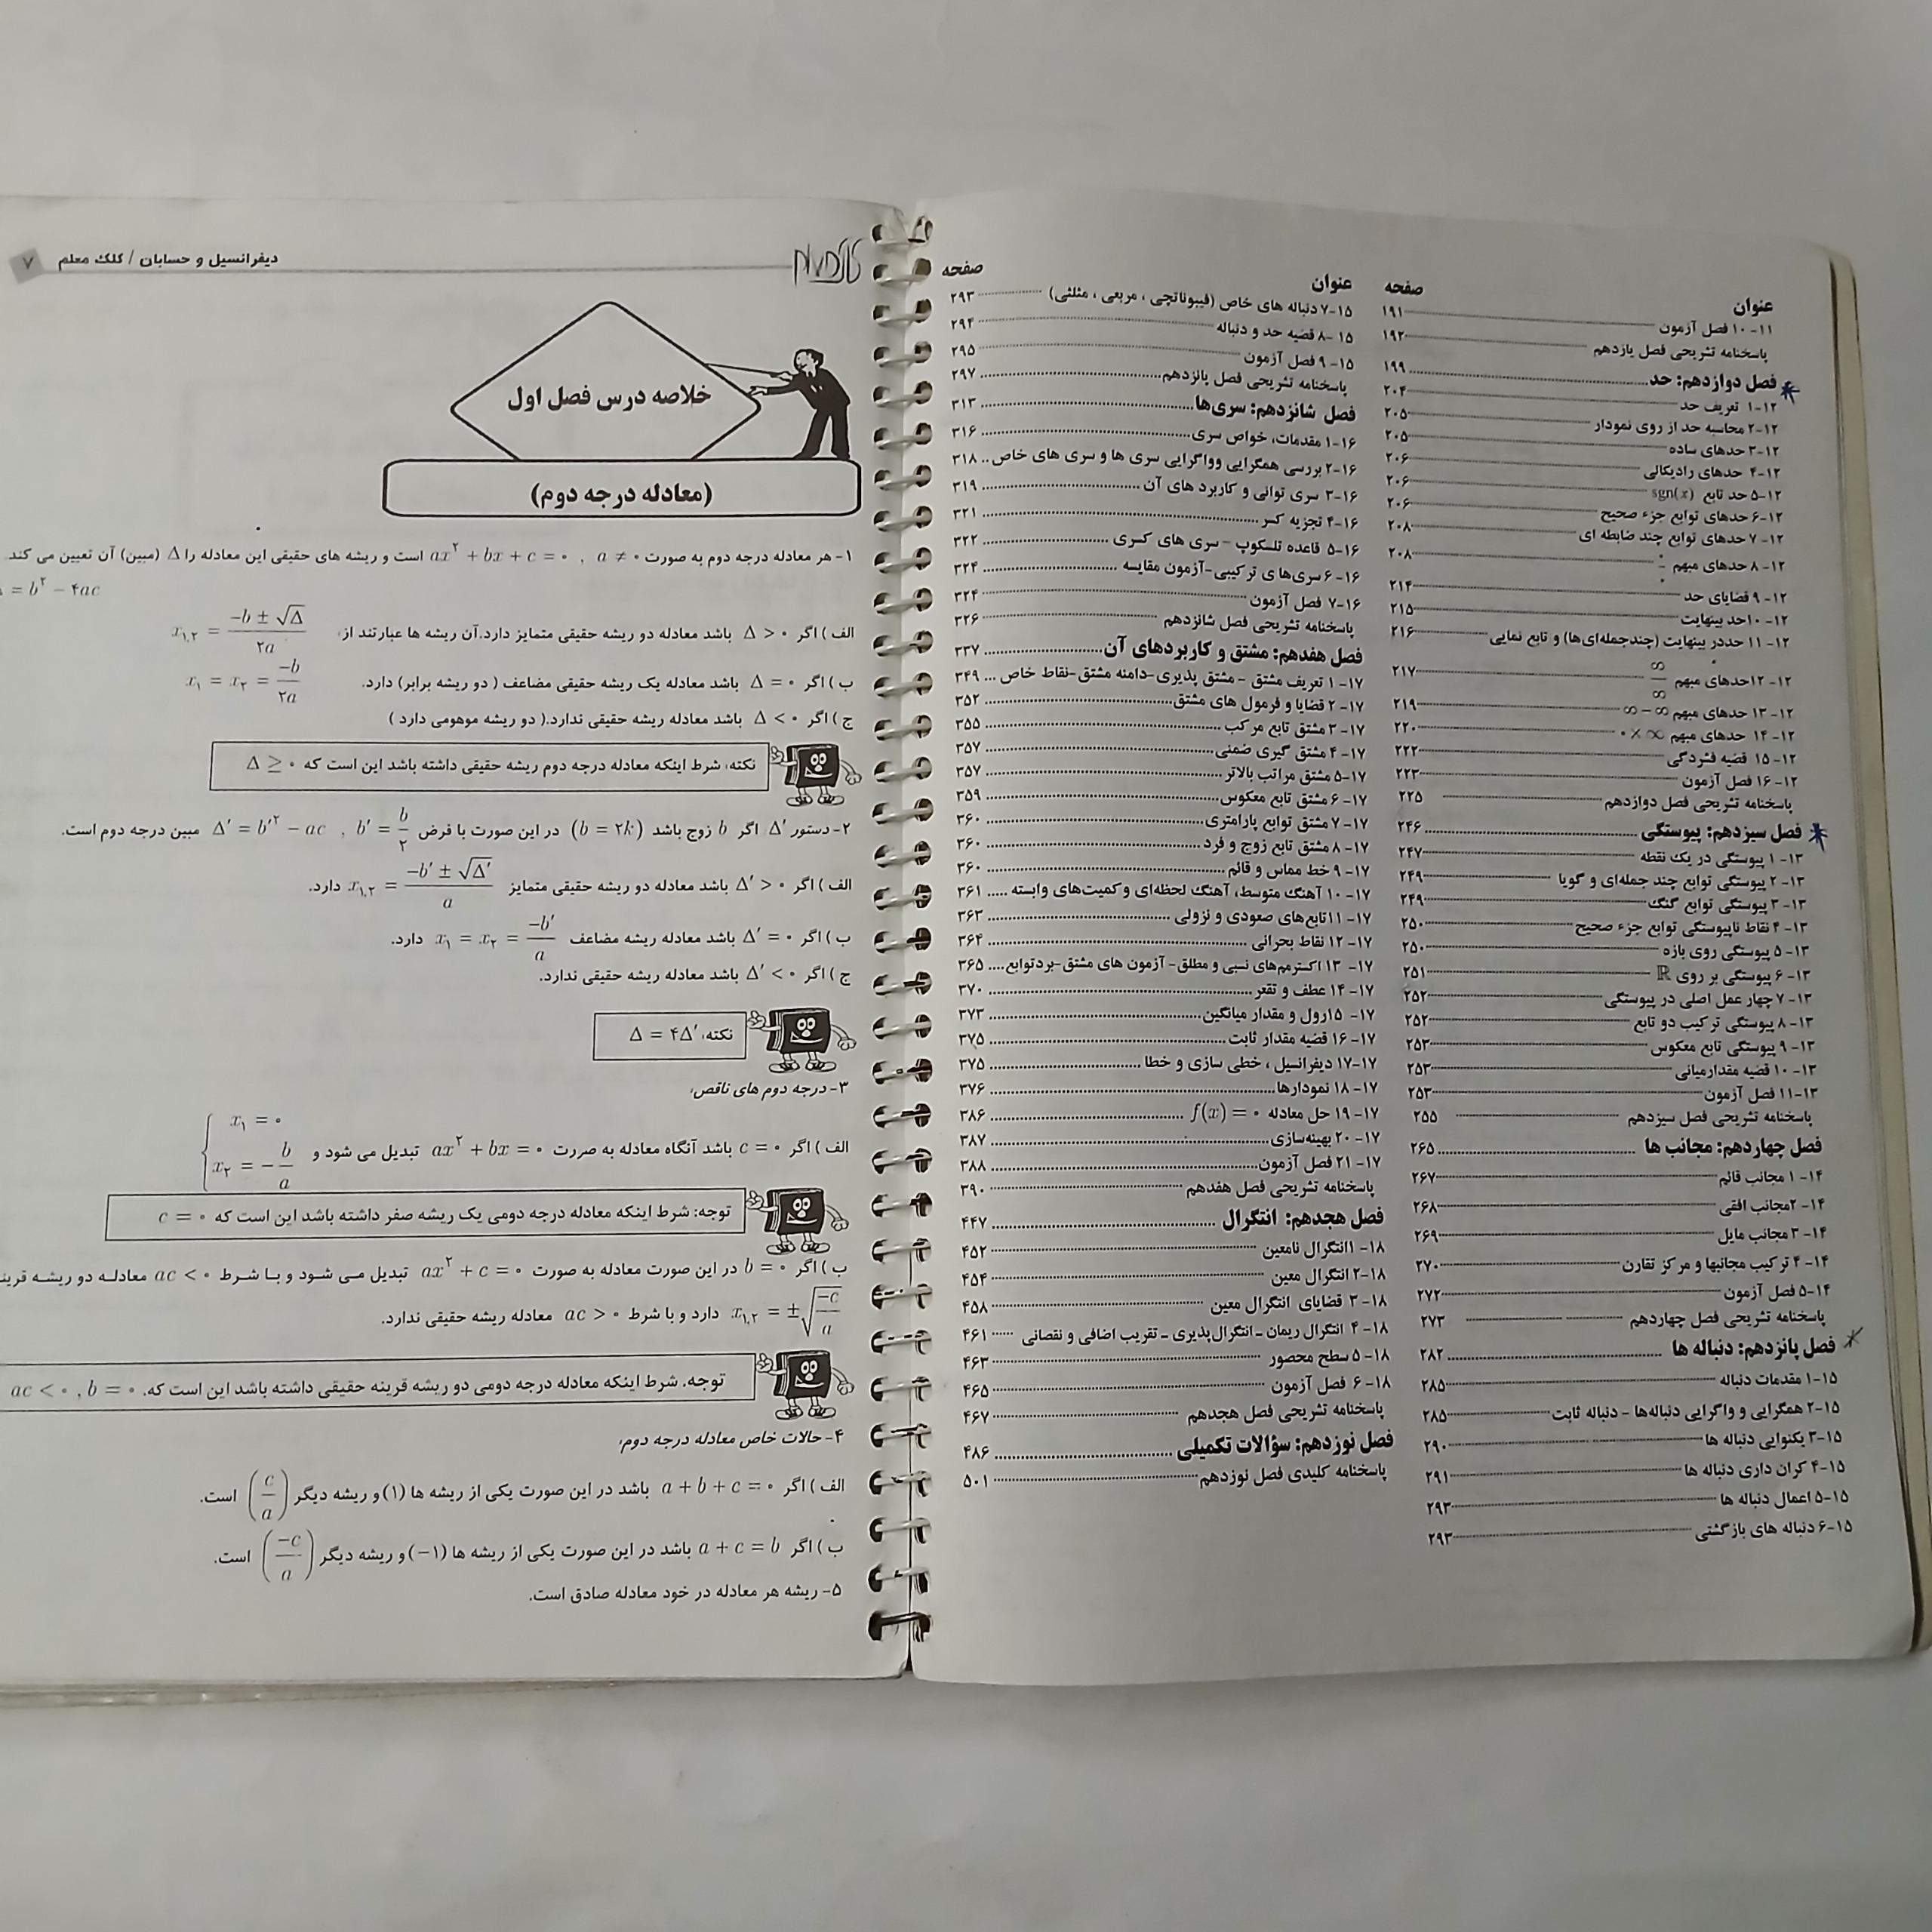 عنوان صفحه
۱۱-۱۰ فصل آزمون ۱۹۱
پاسخنامه تشریحی فصل یازدهم ۱۹۲
فصل دوازدهم: حد ۱۹۹
۱۲-۱ تعریف حد ۲۰۴
۱۲-۲ محاسبه حد از روی نمودار ۲۰۵
۱۲-۳ حدهای ساده ۲۰۵
۱۲-۴ حدهای رادیکالی ۲۰۶
۱۲-۵ حد تابع sgn(x) ۲۰۶
۱۲-۶ حدهای توابع جزء صحیح ۲۰۶
۱۲-۷ حدهای توابع چند ضابطه ای ۲۰۸
۱۲-۸ حدهای مبهم ۰/۰ ۲۰۸
۱۲-۹ قضایای حد ۲۱۴
۱۲-۱۰ حد بینهایت ۲۱۵
۱۲-۱۱ حددر بینهایت (چندجمله‌ای‌ها) و تابع نمایی ۲۱۶
۱۲-۱۲ حدهای مبهم ∞/∞ ۲۱۷
۱۲-۱۳ حدهای مبهم ∞ − ∞ ۲۱۹
۱۲-۱۴ حدهای مبهم ۰ × ∞ ۲۲۰
۱۲-۱۵ قضیه فشردگی ۲۲۲
۱۲-۱۶ فصل آزمون ۲۲۳
پاسخنامه تشریحی فصل دوازدهم ۲۲۵
فصل سیزدهم: پیوستگی ۲۴۶
۱۳-۱ پیوستگی در یک نقطه ۲۴۷
۱۳-۲ پیوستگی توابع چند جمله‌ای و گویا ۲۴۹
۱۳-۳ پیوستگی توابع گنگ ۲۴۹
۱۳-۴ نقاط ناپیوستگی توابع جزء صحیح ۲۵۰
۱۳-۵ پیوستگی روی بازه ۲۵۰
۱۳-۶ پیوستگی بر روی ℝ ۲۵۱
۱۳-۷ چهار عمل اصلی در پیوستگی ۲۵۲
۱۳-۸ پیوستگی ترکیب دو تابع ۲۵۲
۱۳-۹ پیوستگی تابع معکوس ۲۵۳
۱۳-۱۰ قضیه مقدارمیانی ۲۵۳
۱۳-۱۱ فصل آزمون ۲۵۳
پاسخنامه تشریحی فصل سیزدهم ۲۵۵
فصل چهاردهم: مجانب ها ۲۶۵
۱۴-۱ مجانب قائم ۲۶۷
۱۴-۲ مجانب افقی ۲۶۸
۱۴-۳ مجانب مایل ۲۶۹
۱۴-۴ ترکیب مجانبها و مرکز تقارن ۲۷۰
۱۴-۵ فصل آزمون ۲۷۲
پاسخنامه تشریحی فصل چهاردهم ۲۷۳
فصل پانزدهم: دنباله ها ۲۸۲
۱۵-۱ مقدمات دنباله ۲۸۵
۱۵-۲ همگرایی و واگرایی دنباله‌ها - دنباله ثابت ۲۸۵
۱۵-۳ یکنوایی دنباله ها ۲۹۰
۱۵-۴ کران داری دنباله ها ۲۹۱
۱۵-۵ اعمال دنباله ها ۲۹۳
۱۵-۶ دنباله های بازگشتی ۲۹۳
عنوان صفحه
۱۵-۷ دنباله های خاص (فیبوناتچی ، مربعی ، مثلثی) ۲۹۳
۱۵-۸ قضیه حد و دنباله ۲۹۴
۱۵-۹ فصل آزمون ۲۹۵
پاسخنامه تشریحی فصل پانزدهم ۲۹۷
فصل شانزدهم: سری‌ها ۳۱۳
۱۶-۱ مقدمات، خواص سری ۳۱۶
۱۶-۲ بررسی همگرایی وواگرایی سری ها و سری های خاص ۳۱۸
۱۶-۳ سری توانی و کاربرد های آن ۳۱۹
۱۶-۴ تجزیه کسر ۳۲۱
۱۶-۵ قاعده تلسکوپ - سری های کسری ۳۲۲
۱۶-۶ سری‌ها ی ترکیبی-آزمون مقایسه ۳۲۴
۱۶-۷ فصل آزمون ۳۲۴
پاسخنامه تشریحی فصل شانزدهم ۳۲۶
فصل هفدهم: مشتق و کاربردهای آن ۳۳۷
۱۷-۱ تعریف مشتق - مشتق پذیری-دامنه مشتق-نقاط خاص ۳۴۹
۱۷-۲ قضایا و فرمول های مشتق ۳۵۲
۱۷-۳ مشتق تابع مرکب ۳۵۵
۱۷-۴ مشتق گیری ضمنی ۳۵۷
۱۷-۵ مشتق مراتب بالاتر ۳۵۷
۱۷-۶ مشتق تابع معکوس ۳۵۹
۱۷-۷ مشتق توابع پارامتری ۳۶۰
۱۷-۸ مشتق تابع زوج و فرد ۳۶۰
۱۷-۹ خط مماس و قائم ۳۶۰
۱۷-۱۰ آهنگ متوسط، آهنگ لحظه‌ای و کمیت‌های وابسته ۳۶۱
۱۷-۱۱ تابع‌های صعودی و نزولی ۳۶۳
۱۷-۱۲ نقاط بحرانی ۳۶۴
۱۷-۱۳ اکسترمم‌های نسبی و مطلق- آزمون های مشتق-بردتوابع ۳۶۵
۱۷-۱۴ عطف و تقعر ۳۷۰
۱۷-۱۵ رول و مقدار میانگین ۳۷۳
۱۷-۱۶ قضیه مقدار ثابت ۳۷۵
۱۷-۱۷ دیفرانسیل ، خطی سازی و خطا ۳۷۵
۱۷-۱۸ نمودارها ۳۷۶
۱۷-۱۹ حل معادله f(x) = ۰ ۳۸۶
۱۷-۲۰ بهینه‌سازی ۳۸۷
۱۷-۲۱ فصل آزمون ۳۸۸
پاسخنامه تشریحی فصل هفدهم ۳۹۰
فصل هجدهم: انتگرال ۴۴۷
۱۸-۱ انتگرال نامعین ۴۵۲
۱۸-۲ انتگرال معین ۴۵۴
۱۸-۳ قضایای انتگرال معین ۴۵۸
۱۸-۴ انتگرال ریمان ـ انتگرال‌پذیری ـ تقریب اضافی و نقصانی ۴۶۱
۱۸-۵ سطح محصور ۴۶۳
۱۸-۶ فصل آزمون ۴۶۵
پاسخنامه تشریحی فصل هجدهم ۴۶۷
فصل نوزدهم: سؤالات تکمیلی ۴۸۶
پاسخنامه کلیدی فصل نوزدهم ۵۰۱
دیفرانسیل و حسابان / کلک معلم ۷
خلاصه درس فصل اول
(معادله درجه دوم)
۱- هر معادله درجه دوم به صورت ax² + bx + c = ۰ , a ≠ ۰ است و ریشه های حقیقی این معادله را Δ (مبین) آن تعیین می کند.
= b² − ۴ac
الف ) اگر Δ > ۰ باشد معادله دو ریشه حقیقی متمایز دارد.آن ریشه ها عبارتند از: x₁,₂ = (−b ± √Δ)/۲a
ب ) اگر Δ = ۰ باشد معادله یک ریشه حقیقی مضاعف ( دو ریشه برابر) دارد. x₁ = x₂ = −b/۲a
ج ) اگر Δ < ۰ باشد معادله ریشه حقیقی ندارد.( دو ریشه موهومی دارد )
نکته: شرط اینکه معادله درجه دوم ریشه حقیقی داشته باشد این است که Δ ≥ ۰
۲- دستور Δ′ اگر b زوج باشد (b = ۲k) در این صورت با فرض b′ = b/۲ , Δ′ = b′² − ac مبین درجه دوم است.
الف ) اگر Δ′ > ۰ باشد معادله دو ریشه حقیقی متمایز x₁,₂ = (−b′ ± √Δ′)/a دارد.
ب ) اگر Δ′ = ۰ باشد معادله ریشه مضاعف x₁ = x₂ = −b′/a دارد.
ج ) اگر Δ′ < ۰ باشد معادله ریشه حقیقی ندارد.
نکته: Δ = ۴Δ′
۳- درجه دوم های ناقص:
الف ) اگر c = ۰ باشد آنگاه معادله به صررت ax² + bx = ۰ تبدیل می شود و { x₁ = ۰ , x₂ = −b/a
توجه: شرط اینکه معادله درجه دومی یک ریشه صفر داشته باشد این است که c = ۰
ب ) اگر b = ۰ در این صورت معادله به صورت ax² + c = ۰ تبدیل می شود و با شرط ac < ۰ معادله دو ریشه قرینه
x₁,₂ = ±√(−c/a) دارد و با شرط ac > ۰ معادله ریشه حقیقی ندارد.
توجه. شرط اینکه معادله درجه دومی دو ریشه قرینه حقیقی داشته باشد این است که. ac < ۰ , b = ۰
۴- حالات خاص معادله درجه دوم:
الف ) اگر a + b + c = ۰ باشد در این صورت یکی از ریشه ها (۱) و ریشه دیگر (c/a) است.
ب ) اگر a + c = b باشد در این صورت یکی از ریشه ها (۱−) و ریشه دیگر (−c/a) است.
۵- ریشه هر معادله در خود معادله صادق است.